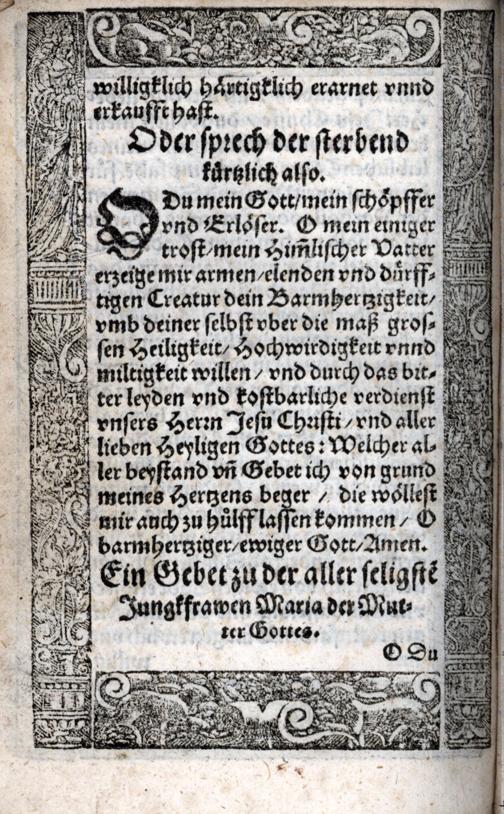 willigklich härtigklich erarnet vnnd
erkaufft hast.
Oder sprech der sterbend
kürtzlich also.
O Du mein Gott/mein schöpffer
vnd Erlöser. O mein einiger
trost/mein Him̃lischer Vatter
erzeige mir armen/elenden vnd dürff-
tigen Creatur dein Barmhertzigkeit/
vmb deiner selbst vber die maß gros-
sen Heiligkeit/ Hochwirdigkeit vnnd
miltigkeit willen/ vnd durch das bit-
ter leyden vnd kostbarliche verdienst
vnsers Herrn Jesu Christi/vnd aller
lieben Heyligen Gottes: Welcher al-
ler beystand vñ Gebet ich von grund
meines Hertzens beger/ die wöllest
mir auch zu hülff lassen kommen/ O
barmhertziger/ewiger Gott/Amen.
Ein Gebet zu der aller seligstẽ
Jungkfrawen Maria der Mut-
ter Gottes.
O Du